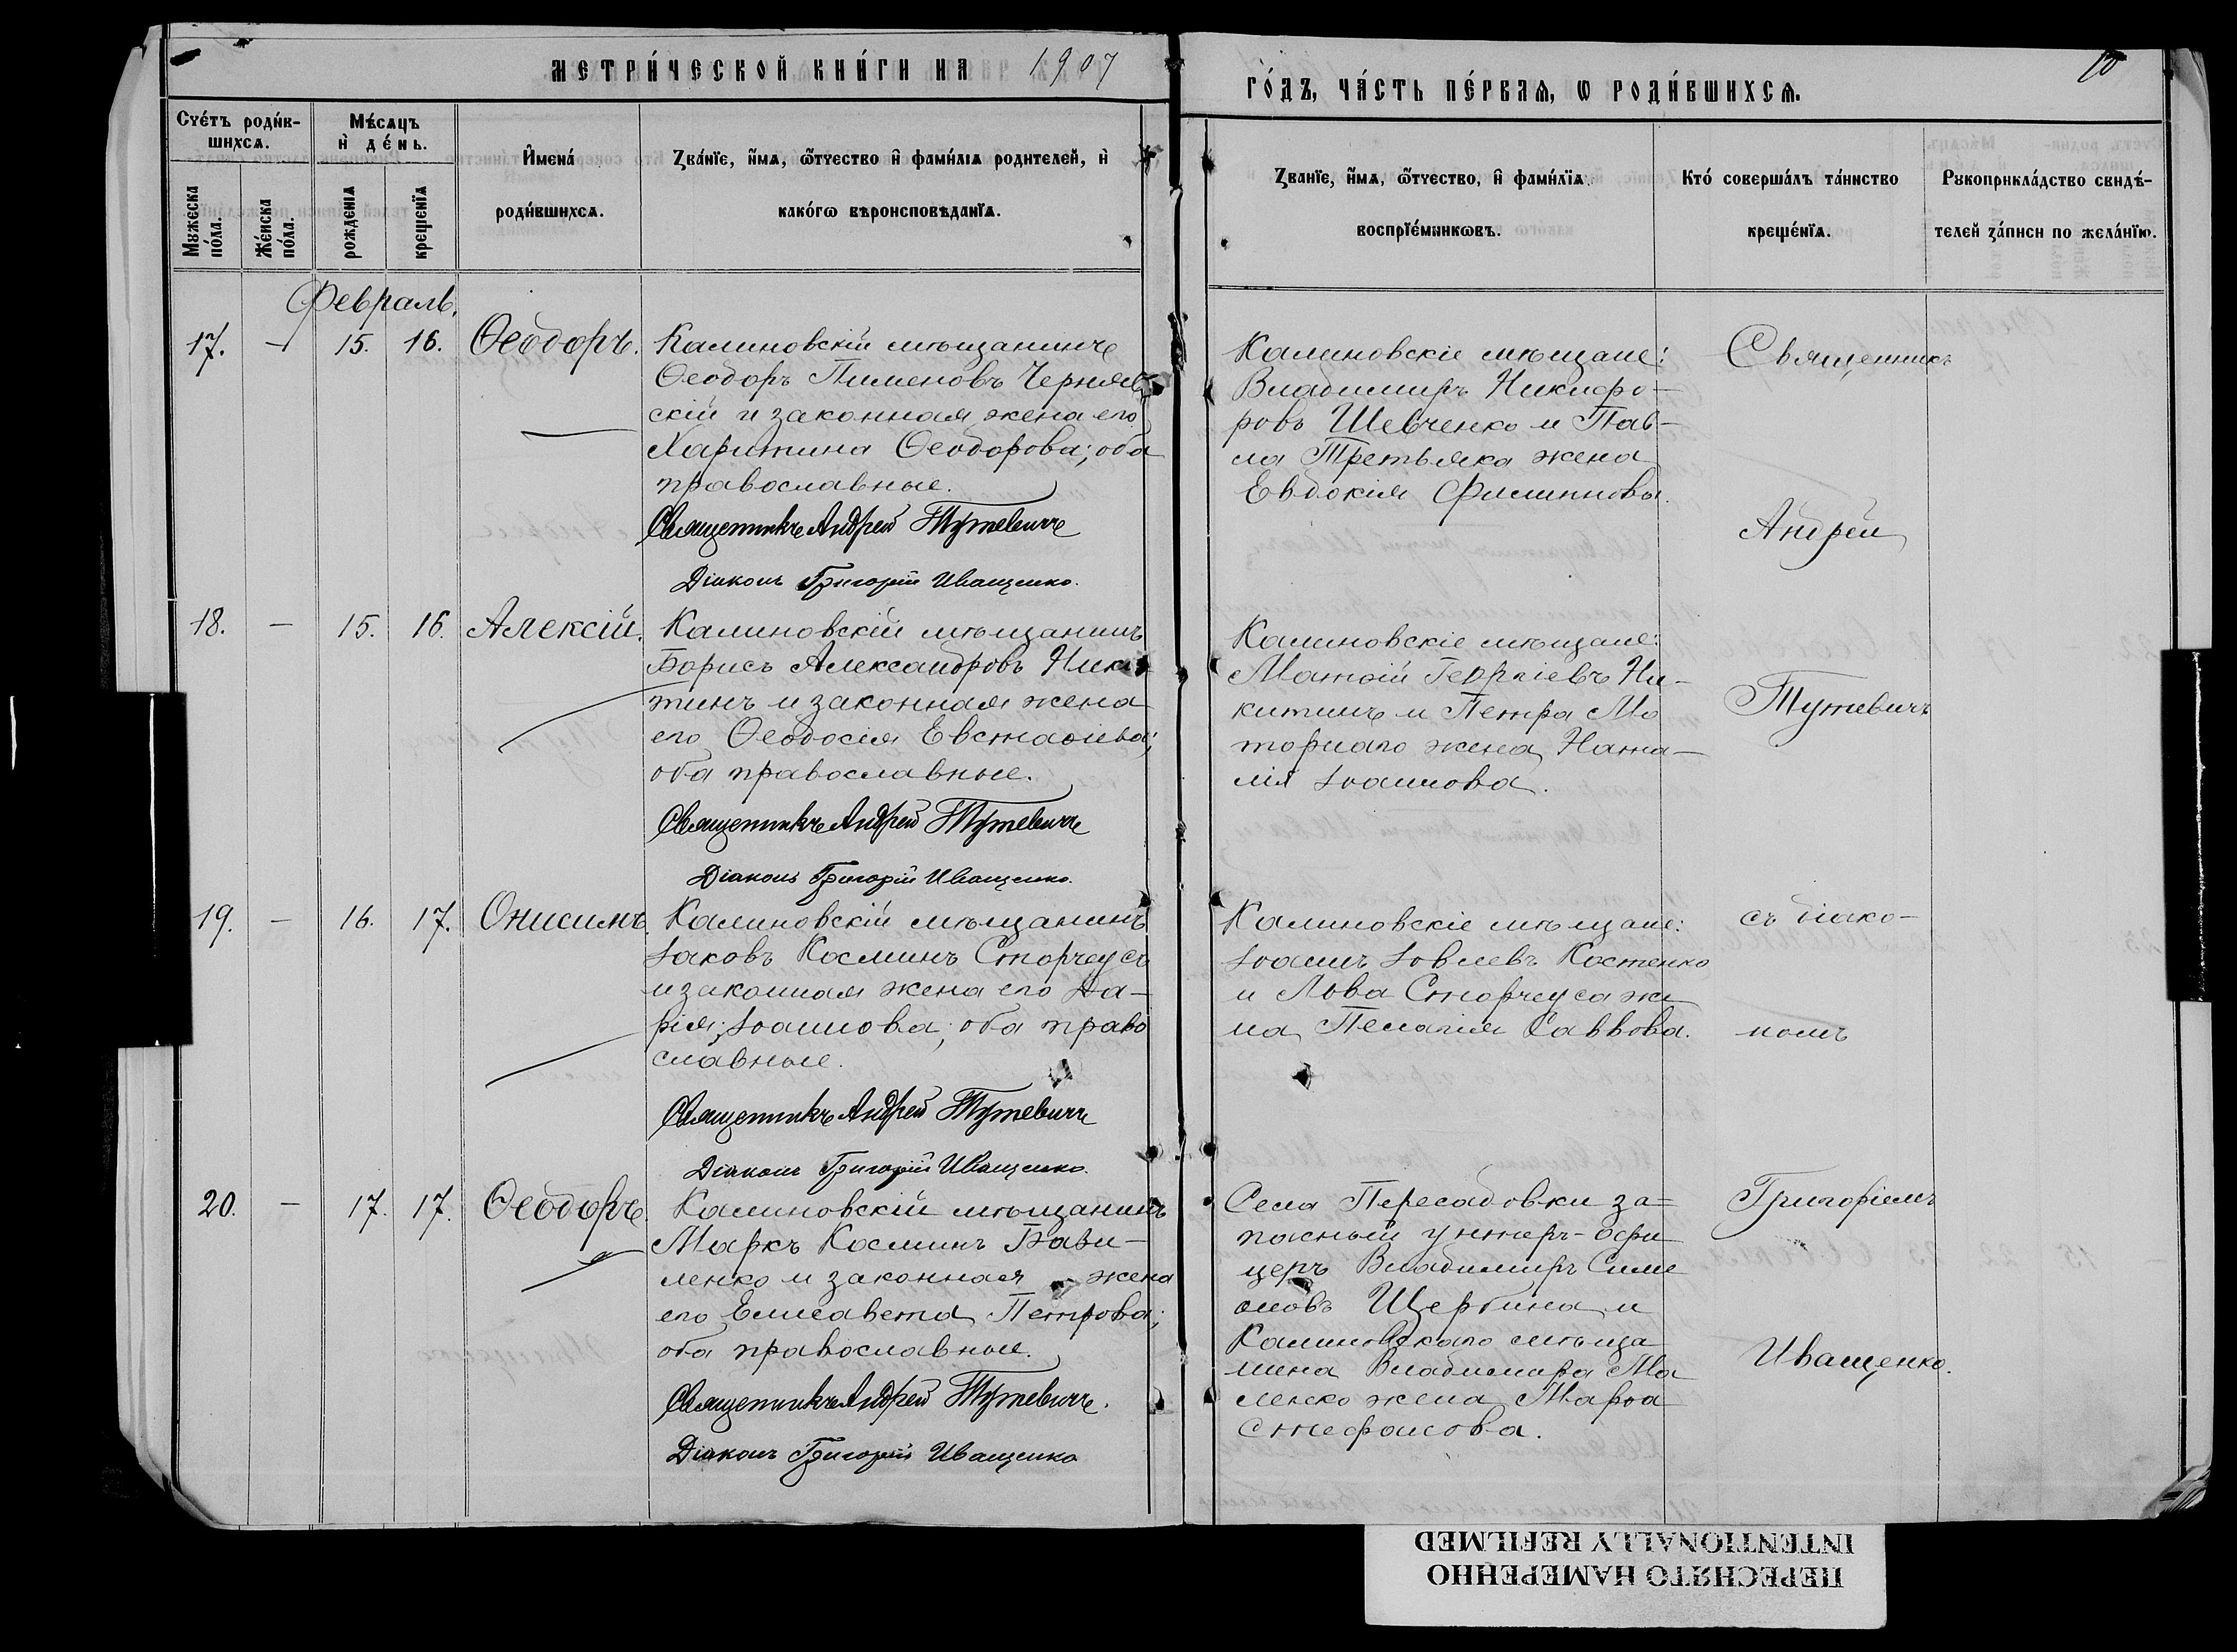 МЕТРИ́ЧЕСКОЙ КНИ́ГИ НА 1907
ГО́ДЪ, ЧА́СТЬ ПЕ́РВАѦ, Ѡ РОДИ́ВШИХСѦ.
10
Счє́тъ роди́в-
шихсѧ.
Мꙋ́жеска по́ла.
Же́нска по́ла.
Мѣ́сѧцъ
и҆ де́нь.
рожденїѧ
крещенїѧ
И҆мена́
роди́вшихсѧ.
Зва́нїе, и҆́мѧ, ѻ҆́тчество и҆ фамн́лїѧ родителей, и҆
како́гѡ вѣроисповѣданїѧ.
Зва́нїе, и҆́мѧ, ѻ҆́тчество, и҆ фами́лїѧ
воспрїе́мникѡвъ.
Кто́ соверша́лъ та́инство
креще́нїѧ.
Рꙋкоприкла́дство свидѣ́-
телей за́писи по жела́нїю.
Февраль.
17. — 15. 16. Ѳеодоръ.
Калиновскій мѣщанинъ
Ѳеодоръ Пименовъ Черняв-
скій и законная жена его
Харитина Ѳеодорова; оба
православные.
Священникъ Андрей Тутевичъ
Діаконъ Григорій Иващенко.
Калиновскіе мѣщане:
Владимиръ Никифо-
ровъ Шевченко и Пав-
ла Третьяка жена
Евдокія Филиппова.
Священникъ
Андрей
18. — 15. 16. Алексій.
Калиновскій мѣщанинъ
Борисъ Александровъ Ники-
тинъ и законная жена
его Ѳеодосія Евстаѳіева;
оба православные.
Священникъ Андрей Тутевичъ
Діаконъ Григорій Иващенко.
Калиновскіе мѣщане:
Матѳій Георгіевъ Ни-
китинъ и Петра Мо
торнаго жена Ната-
лія Іоаннова.
Тутевичъ
19. — 16. 17. Онисимъ.
Калиновскій мѣщанинъ
Іаковъ Косминъ Сторчеусъ
и законная жена его Да-
рія Іоаннова; оба право
славные.
Священникъ Андрей Тутевичъ
Діаконъ Григорій Иващенко.
Калиновскіе мѣщане:
Іоаннъ Іовлевъ Костенко
и Льва Сторчеуса же
на Пелагія Саввова.
съ діако-
номъ
20. — 17. 17. Ѳеодоръ.
Калиновскій мѣщанинъ
Маркъ Косминъ Вави-
ленко и законная жена
его Елисавета Петрова;
оба православные.
Священникъ Андрей Тутевичъ.
Діаконъ Григорій Иващенко
Села Пересадовки за=
пасный унтеръ-офи
церъ Владимиръ Симе
оновъ Щербина и
Калиновскаго мѣща
нина Владимира Ма
ленко жена Марѳа
Стефанова.
Григоріемъ
Иващенко.
ПЕРЕСНЯТО НАМЕРЕННО
INTENTIONALLY REFILMED